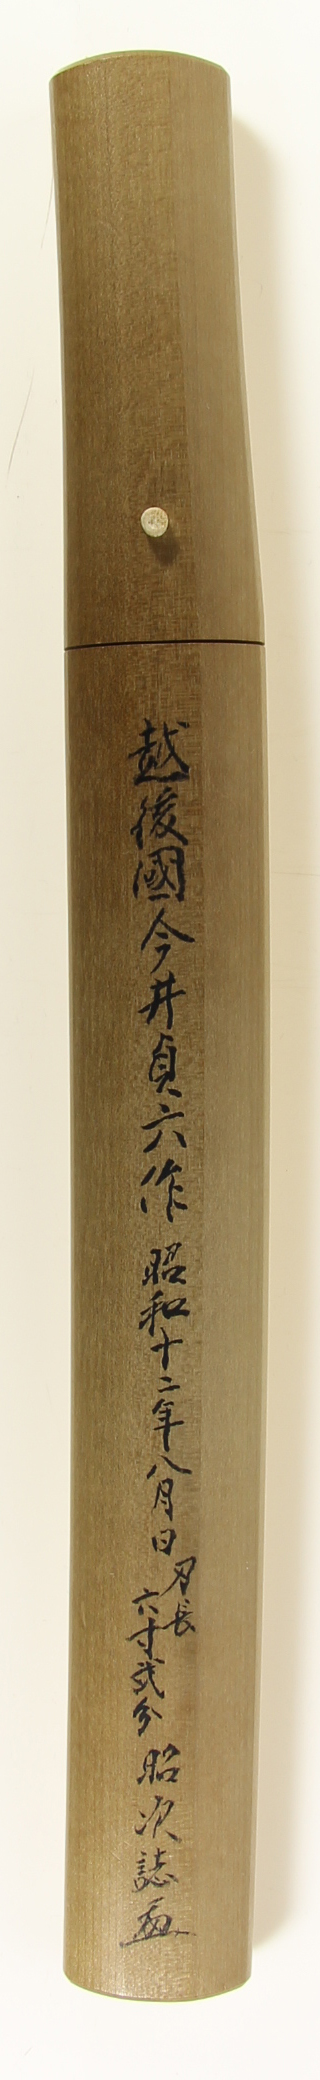 越後國今井貞六作 昭和十二年八月日
刃長
六寸弐分
昭次誌